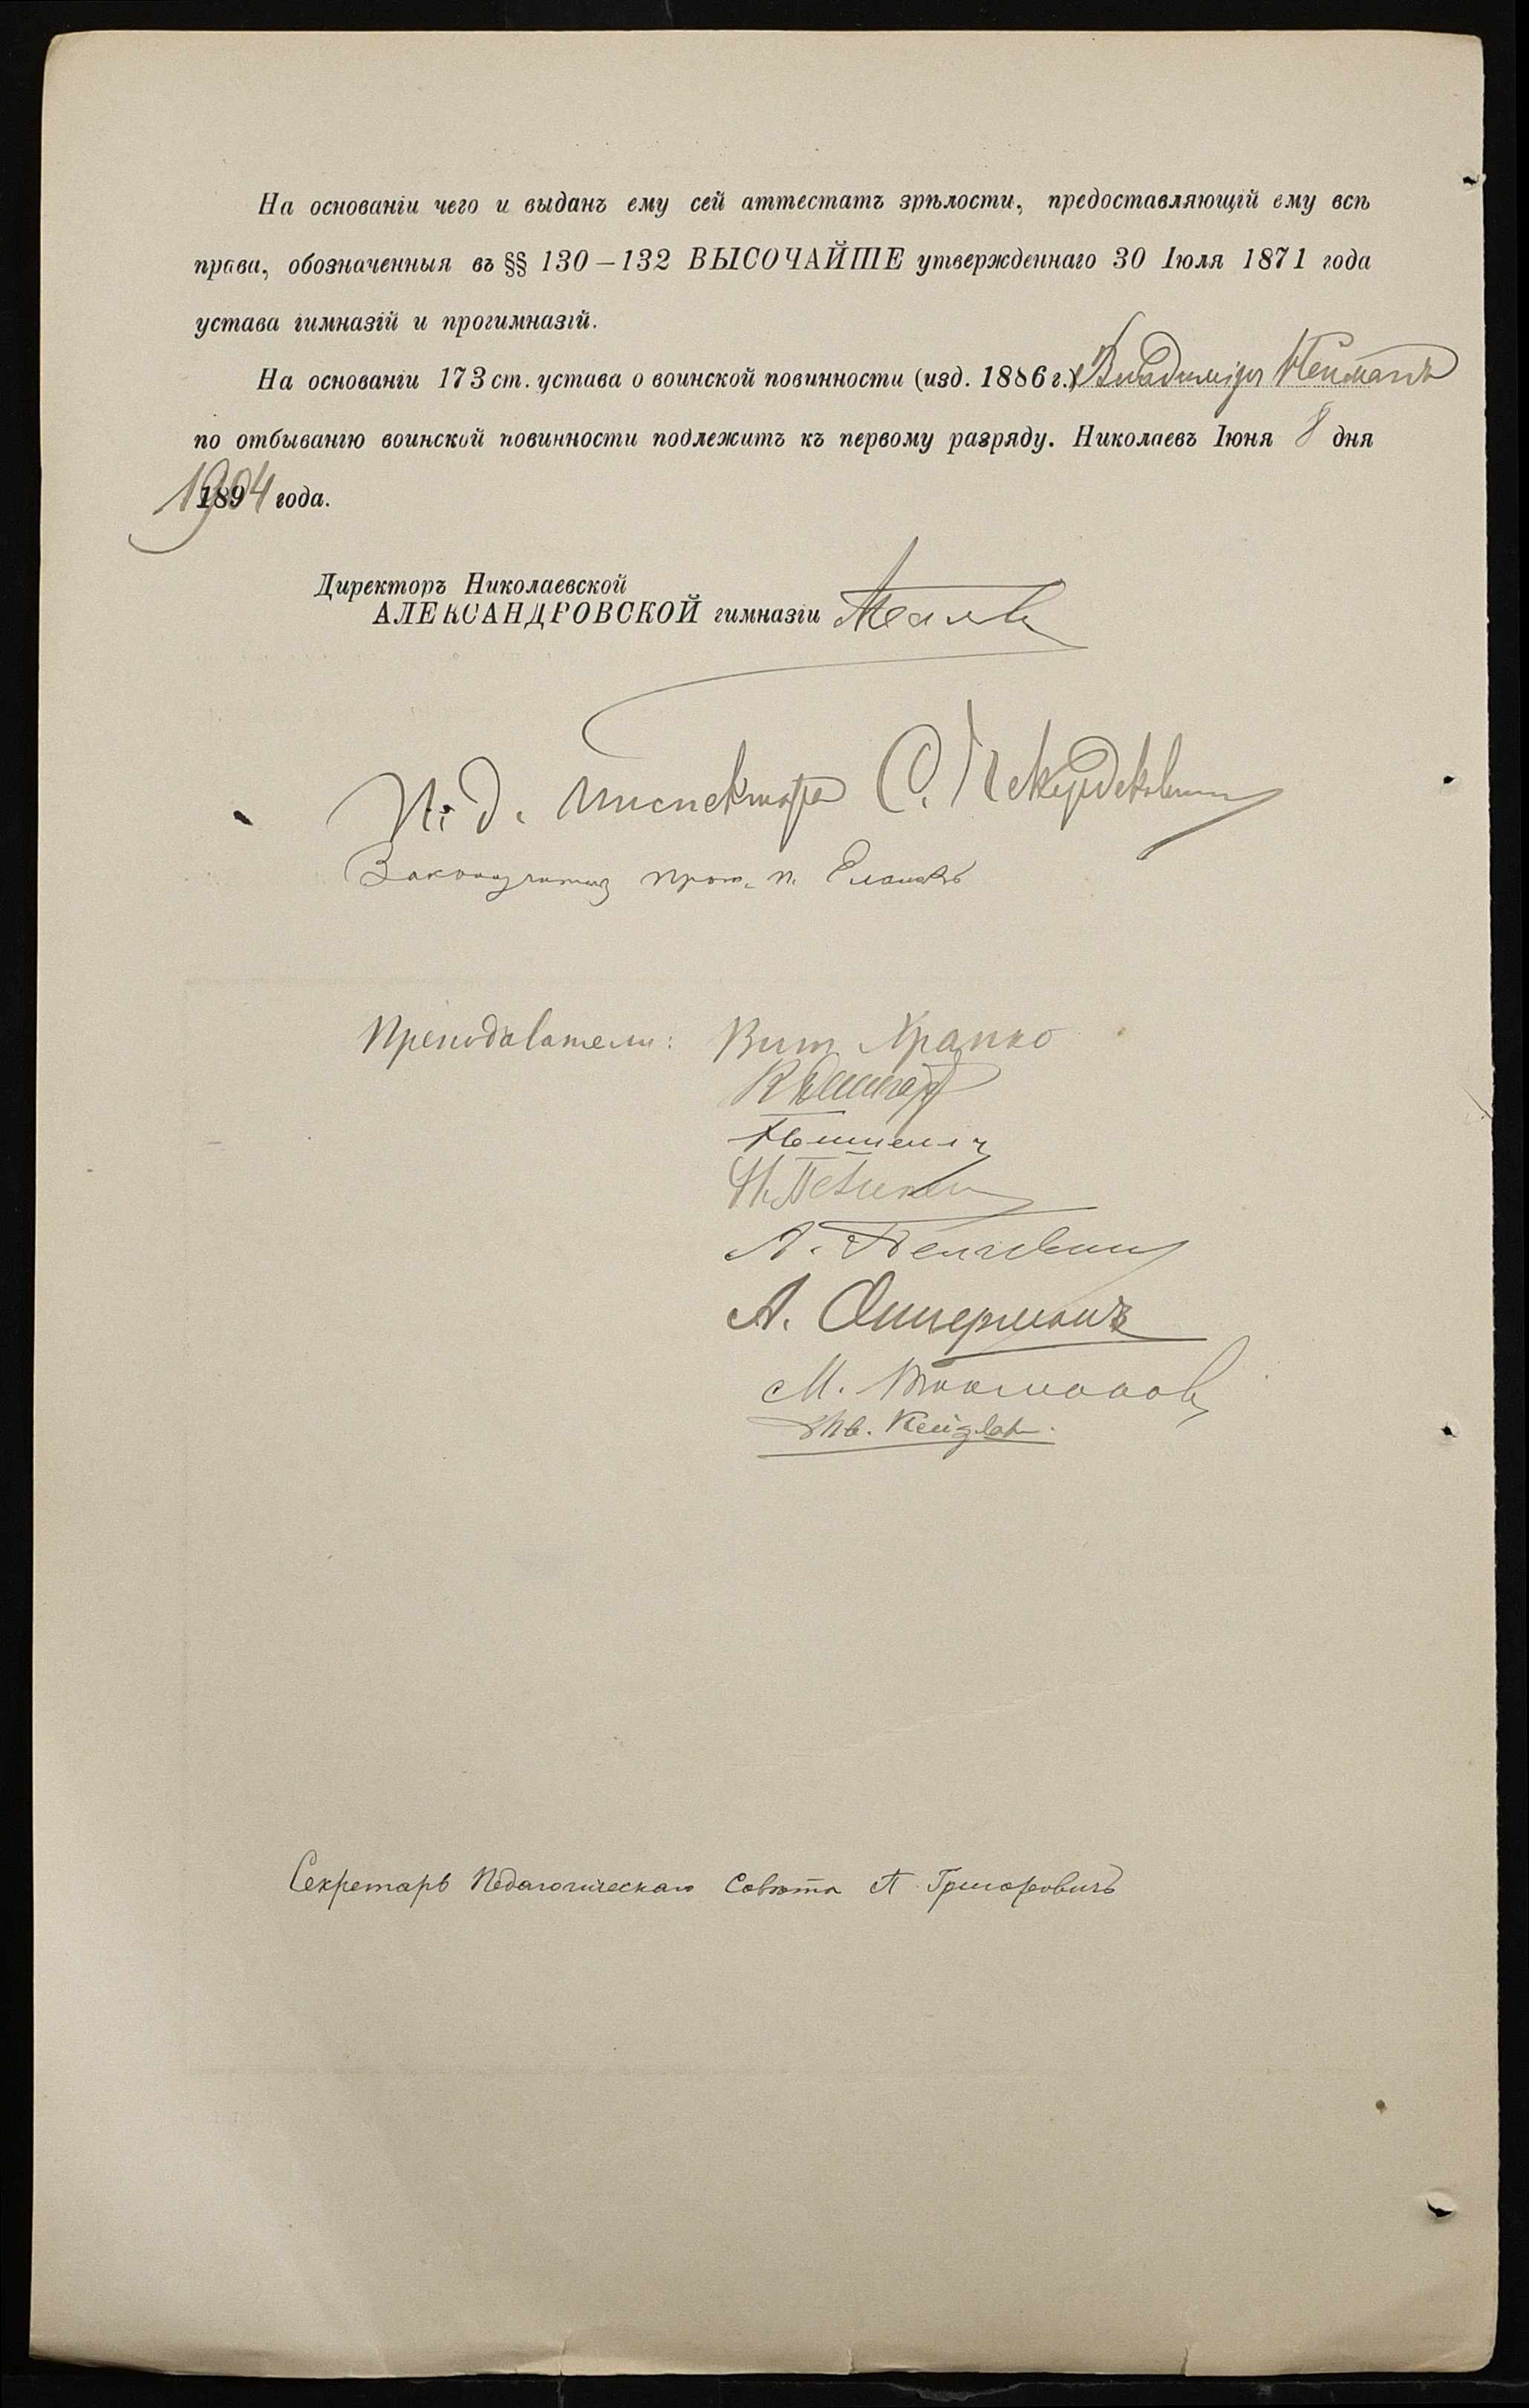 На основаніи чего и выданъ ему сей аттестатъ зрѣлости, предоставляющій ему всѣ
права, обозначенныя въ §§ 130—132 ВЫСОЧАЙШЕ утвержденнаго 30 Іюля 1871 года
устава гимназій и прогимназій.
На основаніи 173 ст. устава о воинской повинности (изд. 1886 г.) Владиміръ Нейманъ
по отбыванію воинской повинности подлежитъ къ первому разряду. Николаевъ Іюня 8 дня
1904 года.
Директоръ Николаевской
АЛЕКСАНДРОВСКОЙ гимназіи
И. д. Инспектора С.
Законоучитель прот. п. Еланскій
Преподаватели: Вит. Храпко
А.
А. Оттерманъ
М.
Секретарь Педагогическаго Совѣта П. Григоровичъ